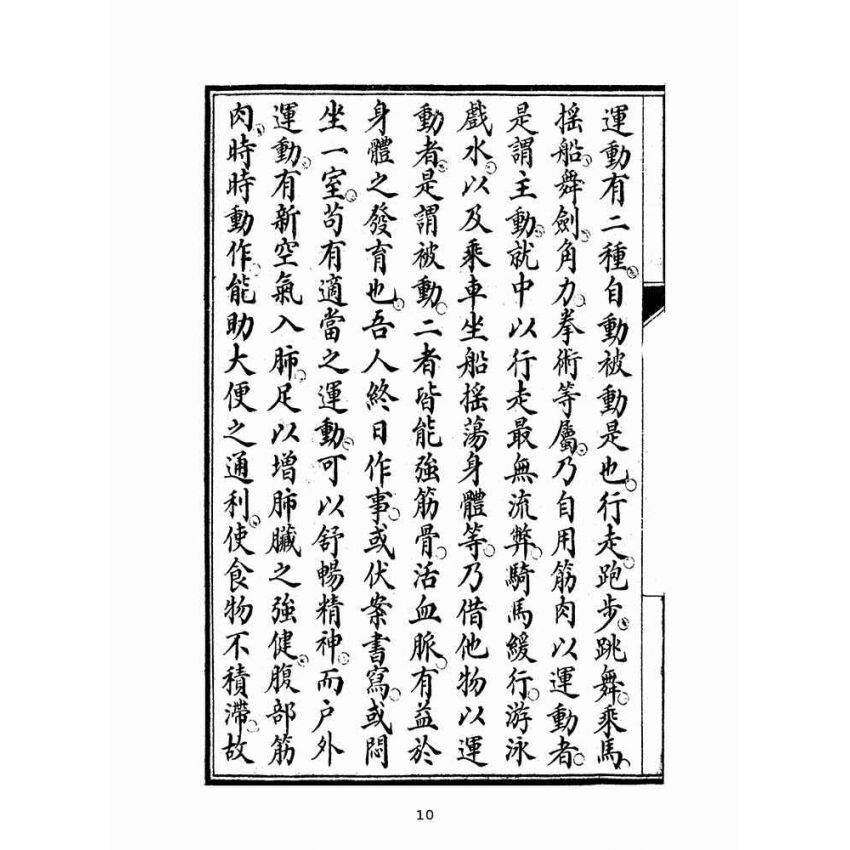 運動有二種。自動被動是也。行走。跑步。跳舞。乘馬、
搖船。舞劍。角力。拳術等屬。乃自用筋肉以運動者。
是謂主動。就中以行走最無流弊。騎馬緩行。游泳
戲水。以及乘車坐船搖蕩身體等。乃借他物以運
動者。是謂被動。二者皆能強筋骨。活血脈。有益於
身體之發育也。吾人終日作事。或伏案書寫。或悶
坐一室。苟有適當之運動。可以舒暢精神。而戶外
運動。有新空氣入肺。足以增肺臟之強健。腹部筋
肉。時時動作。能助大便之通利。使食物不積滯。故
10